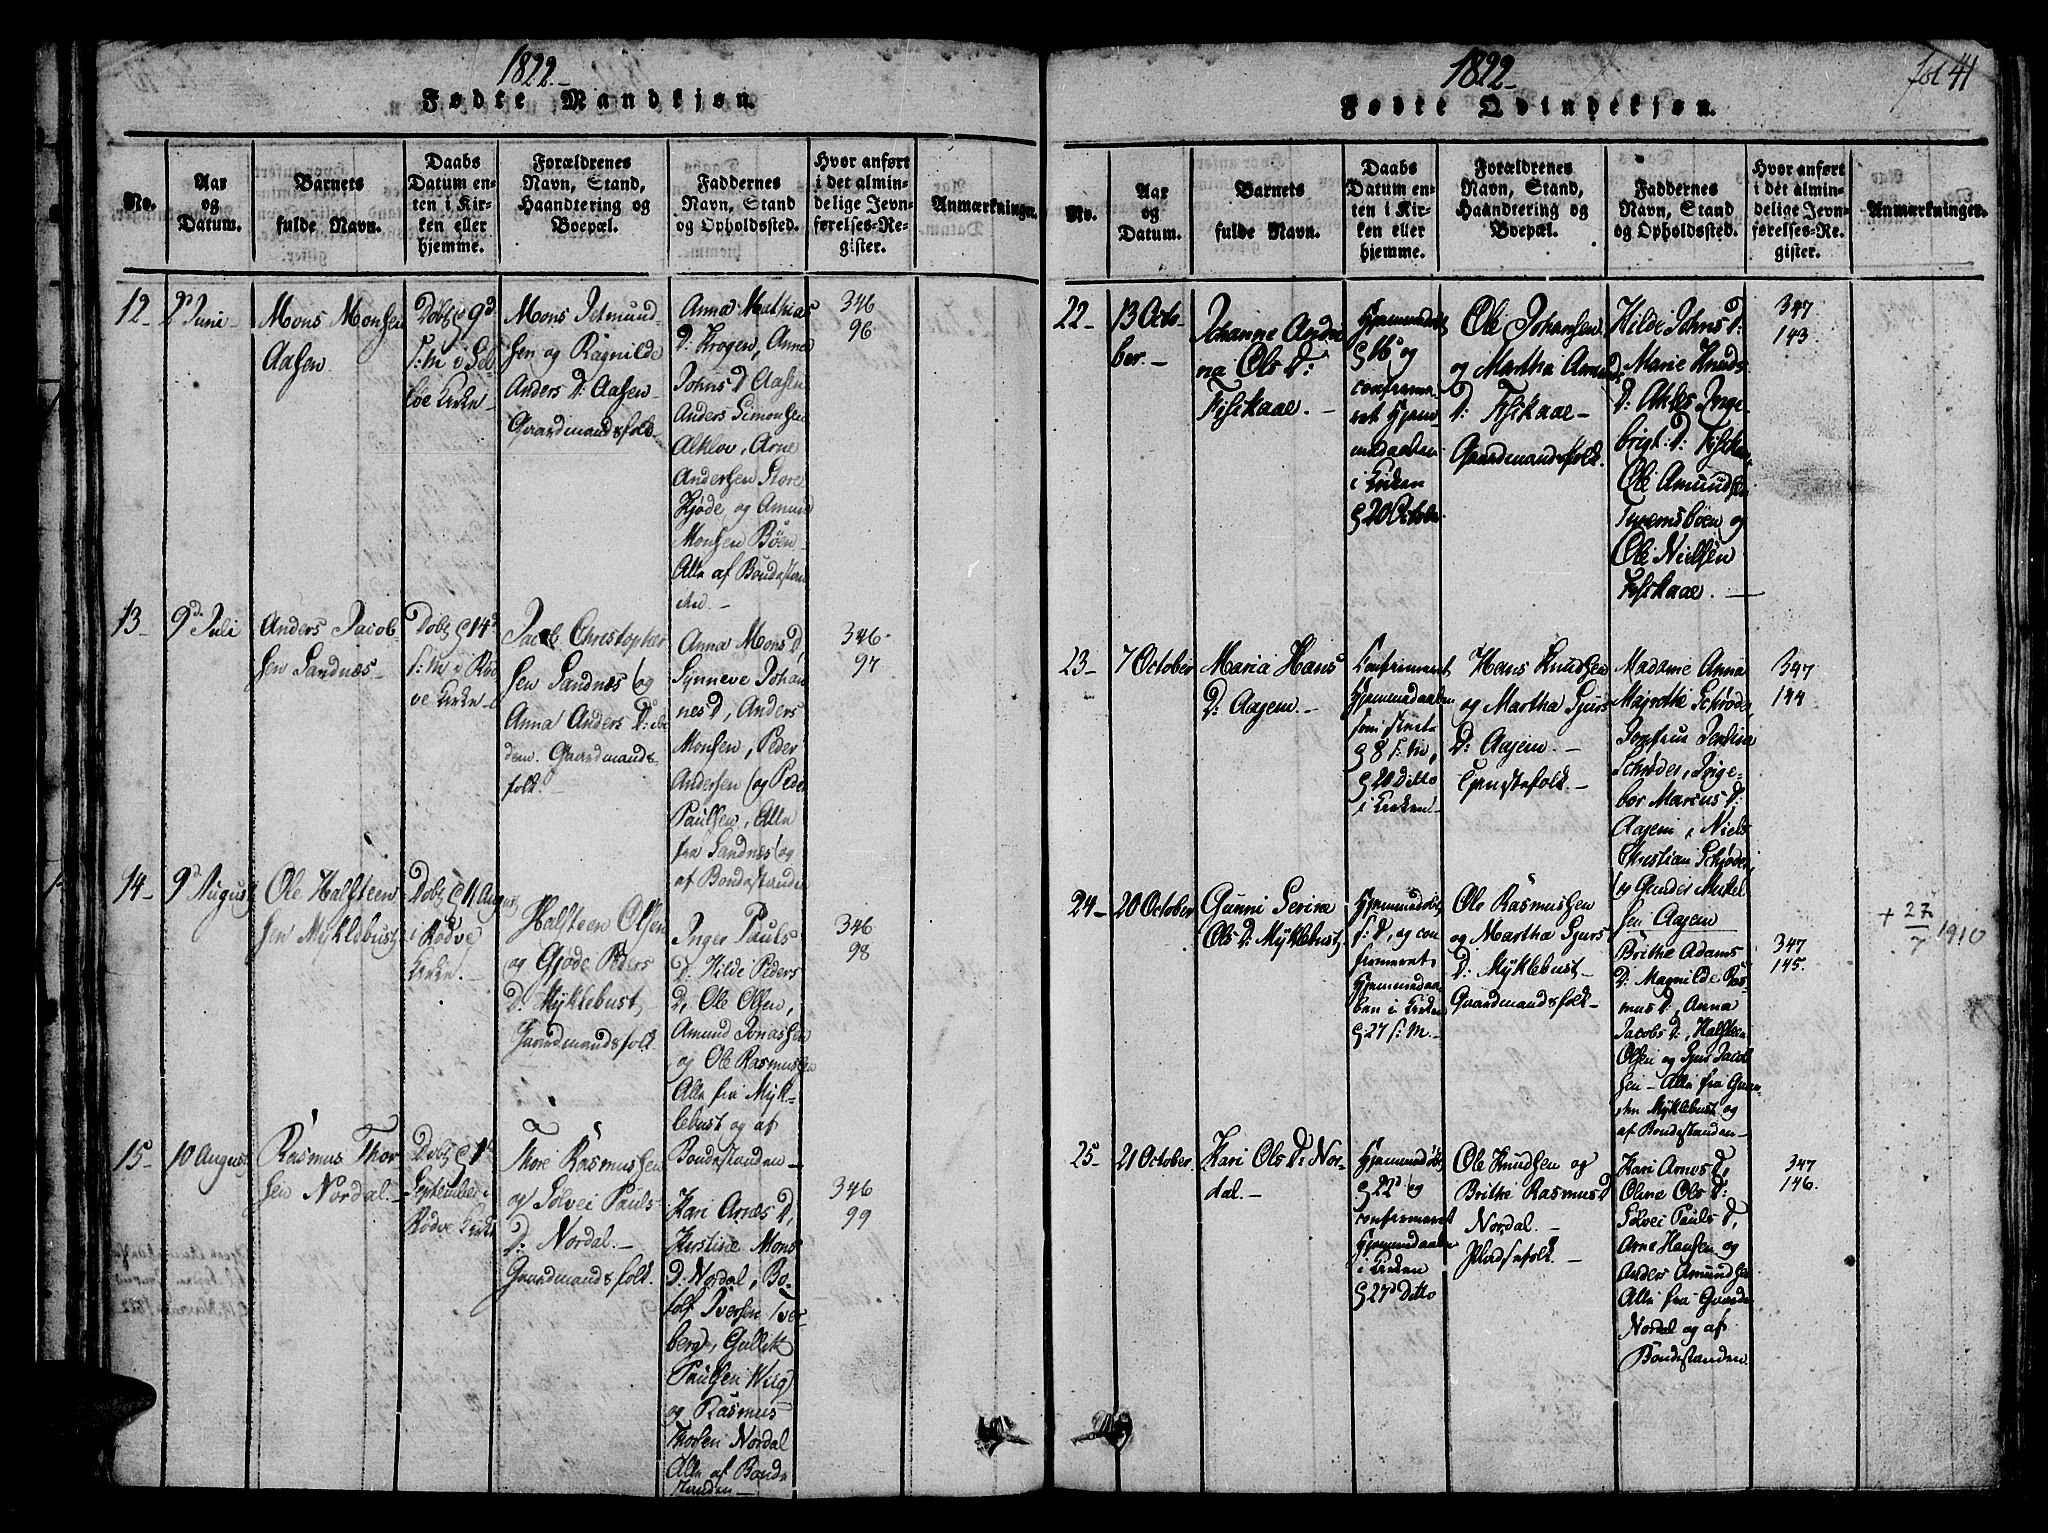 1822.
Fødte Mandkjøn.
No.
Aar
og
Datum.
Barnets
fulde Navn.
Daabs
Datum en-
ten i Kir-
ken eller
hjemme.
Forældrenes
Navn, Stand,
Haandtering og
Boepæl.
Faddernes
Navn, Stand
og Opholdssted.
Hvor anført
i det almin-
delige Jevn-
førelses-Re-
gister.
Anmærkninger.
12-
2d Juni
Mons Monsen
Aasen
Døbt d 9d
s: m i
Kirke
Mons Jetmund-
sen og Ragnilde
Anders D: Aasen
Gaardmandsfolk
Anna Mathias
D: Krogen, Anne
Johns D Aasen
Anders Simonsen
Alkleve, Arne
Andersen Store
Hjøde og Amund
Monsen Bøen
Alle af Bondestan
den.
346
96
13-
9d Juli
Anders Jacob-
sen Sandnæs
Døbt d 14d
s: m i Rød-
ve Kirke
Jacob Christopher
sen Sandnæs og
Anna Anders D: ibi
dem. Gaardmands-
folk.
Anna Mons D,
Synneve Johan
nes D, Anders
Monsen, Peder
Andersen og Peder
Paulsen, Alle
fra Sandnæs og
af Bondestanden
346
97
14-
9d August
Ole Halsteen
sen Myklebust
Døbt d 11 August
i Rødve
Kirke.
Halsteen Olsen
og Gjøde Peders
D: Myklebust
Gaardmandsfolk
Inger Pauls
D: Hilde Peders
D, Ole Olsen,
Amund Jonassen
og Ole Rasmussen
Alle fra Myk-
lebust og af
Bondestanden
346
98
15-
10 August
Rasmus Thor
sen Nordal.
Døbt d 1d
September i
Rødve Kirke
Thore Rasmussen
og Sølvei Pauls
D: Nordal.
Gaardmandsfolk.
Kari Arnes D,
Kirstine Mons
D: Nordal, Bo-
tolf Iversen Tver-
berg, Gullik
Paulsen
og Rasmus
Thorsen Nordal
Alle af Bonde
standen
346
99
1822
fol 41
Fødte Qvindekjøn.
No.
Aar
og
Datum.
Barnets
fulde Navn.
Daabs
Datum en-
ten i Kir-
ken eller
hjemme.
Forældrenes
Navn, Stand,
Haandtering og
Boepæl.
Faddernes
Navn, Stand
og Opholdssted.
Hvor anført
i det almin-
delige Jevn-
førelses-Re-
gister.
Anmærkninger.
22-
13 Octo-
ber.
Johanne Andri
na Ols D:
Fiskaae.
Hjemmedøbt
d 16d og
confirme-
ret Hjem-
medaaben
i Kirken
d 20 October
Ole Johansen
og Martha Amunds
D: Fiskaae
Gaardmandsfolk.
Hilde Johns D:
Marie Knuds
D: Inge-
brigt D:
Ole Amundsen
og
Ole Nielsen
Fiskaae.
347
143
23-
7 October
Maria Hans
D: Aajem.
Confirmeret
Hjemmedaaben
som skeete
d 8 s: m,
d 20 Ditto
i Kirken
Hans Knudsen
og Martha Sjurs
D: Aajem.
Tjenestefolk.
Madame Anna
Schrøder,
Jomfrue
Schrøder, Inge-
bor Marcus D:
Aajem, Niels
Christian Schrøder
og Gunder Mikel
sen Aajem
347
144
24-
20 October
Gunni Serine
Ols D: Myklebust
Hjemmedøbt
s: D, og con
firmeret
Hjemmedaa-
ben i Kirken
d 27 s: M.
Ole Rasmussen
og Martha Sjurs
D: Myklebust
Gaardmandsfolk
Brithe Adams
D: Magnilde Ras-
mus D, Anna
Jacobs D:, Halsteen
Olsen og Sjur Jacob
sen - Alle fra Gaar-
den Myklebust og
af Bondestanden
347
145.
+ 27/7 1910
25-
21 October
Kari Ols D: Nor-
dal.
Hjemmedøbt
d 22d og
confirmeret
Hjemmedaaben
i Kirken
d 27d Ditto
Ole Knudsen og
Brithe Rasmus D
Nordal.
Pladsefolk.
Kari Arnes D,
Oline Ols D:
Sølvei Pauls D,
Arne Hansen og
Anders Amundsen
Alle fra Gaarden
Nordal og af
Bondestanden
347
146.